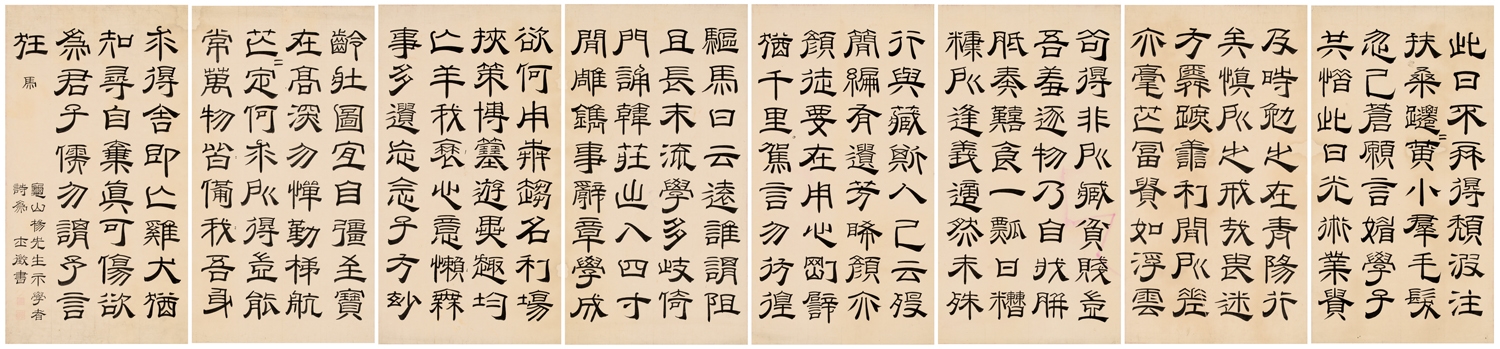 此日不再得頹波注
扶桑躚〻黃小羣毛髮
忽已蒼願言媚學子
共惜此日光術業貴
及時勉之在青陽行
矣慎所之戒哉畏迷
方舜跖善利間所差
亦毫芒富貴如浮雲
苟得非所臧貧賤豈
吾羞逐物乃自戕胼
胝奏艱食一瓢甘糟
糠所逢義適然未殊
行與藏斯人已云歿
簡編有遺芳晞顏亦
顏徒要在用心剛譬
猶千里駕言勿彷徨
驅馬日云遠誰謂阻
且長末流學多歧倚
門誦韓莊出入四寸
間雕鐫事辭章學成
欲何用奔趨名利場
挾策博簺遊異趣均
亡羊我衰心意懶無
事多遺忘念子方妙
齡壯圖宜自彊至寶
在高深勿憚勤梯航
芒〻定何求所得豈能
常萬物皆備我吾身
求得舍即亡雞犬猶
知尋自棄真可傷欲
為君子儒勿謂予言
狂 馬
龜山楊先生示學者
詩為 士徵書